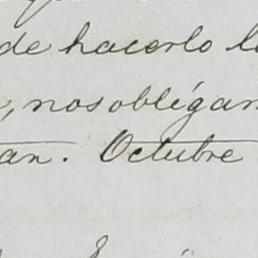 de hacerlo l
, nos obligan
an. Octubre